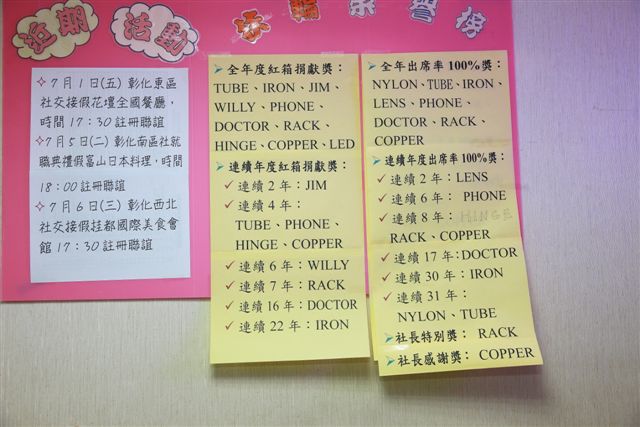 近期活動
榮譽榜
◇7月1日(五)彰化東區
社交接假花壇全國餐廳，
時間17:30註冊聯誼
◇7月5日(二)彰化南區社就
職典禮假富山日本料理，時間
18:00註冊聯誼
◇7月6日(三)彰化西北
社交接假桂都國際美食會
館17:30註冊聯誼
➢全年度紅箱捐獻獎：
TUBE、IRON、JIM、
WILLY、PHONE、
DOCTOR、RACK、
HINGE、COPPER、LED
➢連續年度紅箱捐獻獎：
✓連續2年：JIM
✓連續4年：
TUBE、PHONE、
HINGE、COPPER
✓連續6年：WILLY
✓連續7年：RACK
✓連續16年：DOCTOR
✓連續22年：IRON
➢全年出席率100%獎：
NYLON、TUBE、IRON、
LENS、PHONE、
DOCTOR、RACK、
COPPER
➢連續年度出席率100%獎：
✓連續2年：LENS
✓連續6年： PHONE
✓連續8年：HINGE
RACK、COPPER
✓連續17年：DOCTOR
✓連續30年：IRON
✓連續31年：
NYLON、TUBE
➢社長特別獎： RACK
➢社長感謝獎： COPPER